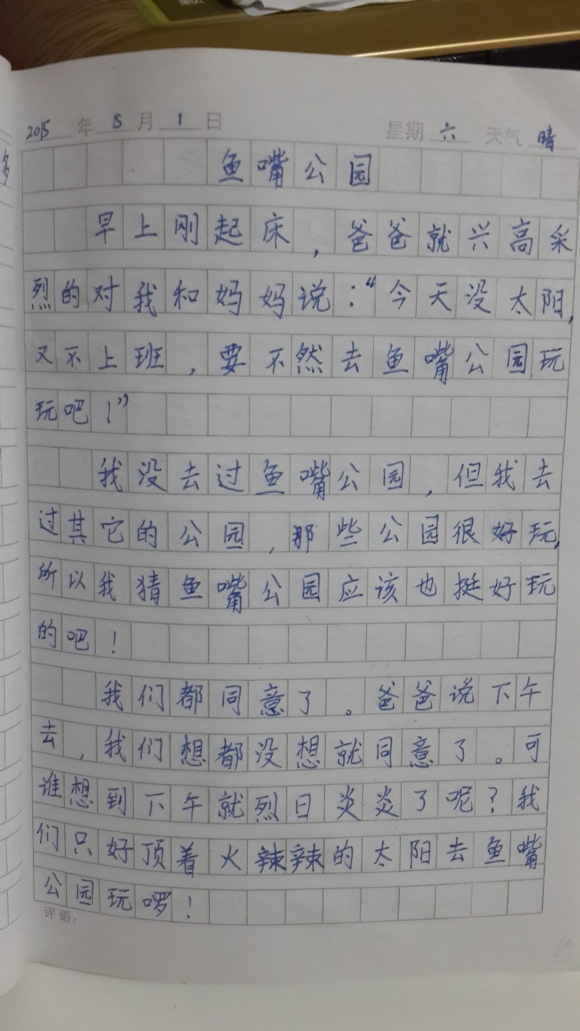 2015 年 8 月 1 日 星期 六 天气 晴
鱼嘴公园
早上刚起床，爸爸就兴高采
烈的对我和妈妈说：“今天没太阳，
又不上班，要不然去鱼嘴公园玩
玩吧！”
我没去过鱼嘴公园，但我去
过其它的公园，那些公园很好玩，
所以我猜鱼嘴公园应该也挺好玩
的吧！
我们都同意了。爸爸说下午
去，我们想都没想就同意了。可
谁想到下午就烈日炎炎了呢？我
们只好顶着火辣辣的太阳去鱼嘴
公园玩啰！
评语：